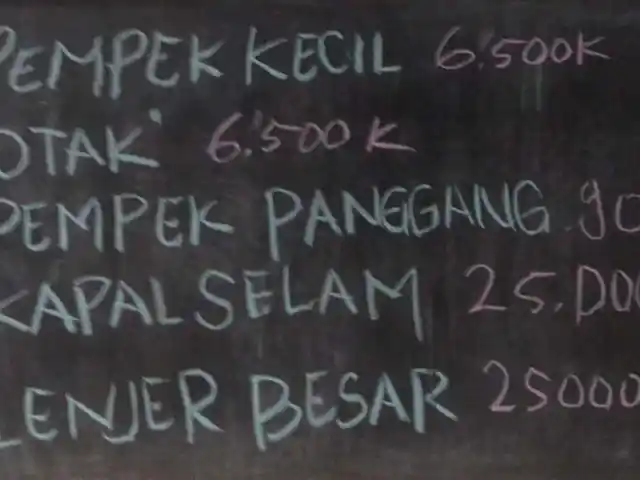 PEMPEK KECIL 6.500K
OTAK" 6.500K
PEMPEK PANGGANG
KAPAL SELAM 25.000
LENJER BESAR 25000